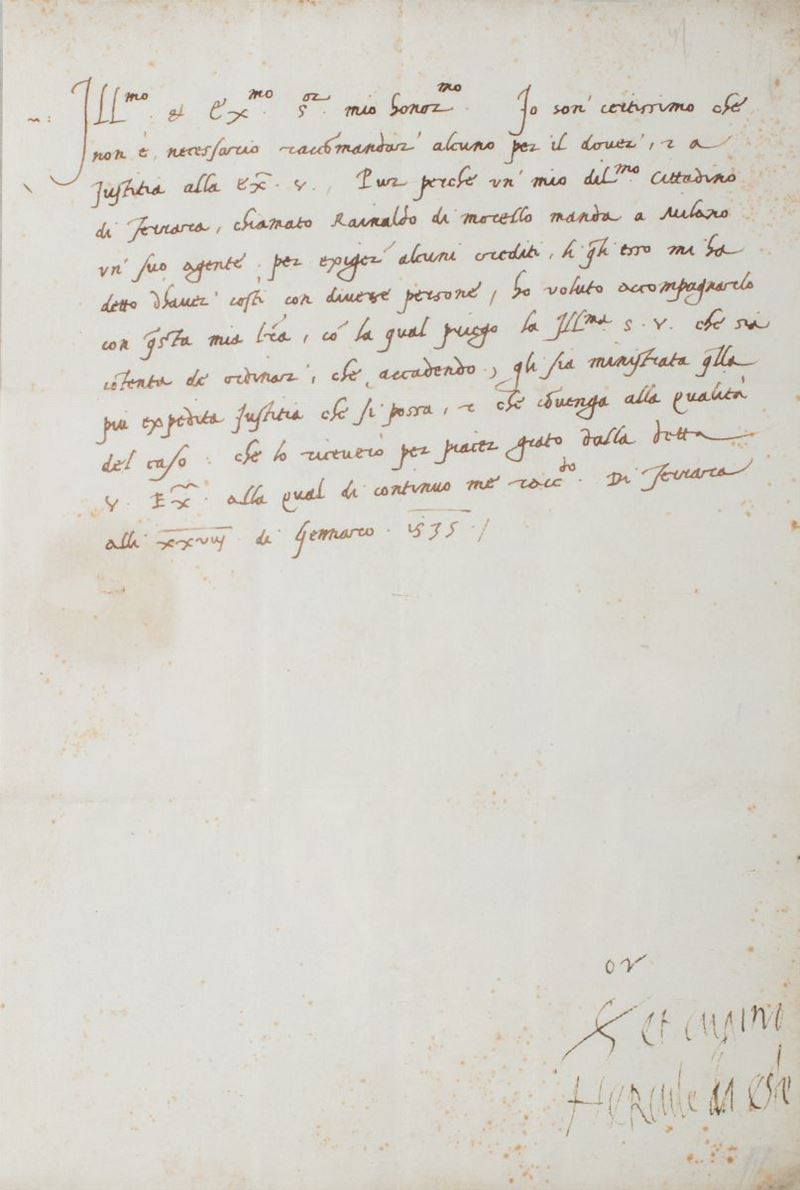 Ill^mo. et Ex^mo. S^or. mio honor^mo. Io son' certissimo che
non è, necessario raccōmandar' alcuno per il dover', et a
Justitia alla Ex. V., Pur perche un' mio dil^mo Cittadino
di Ferrara, chiamato Rainaldo di morello manda a Milano
un' suo agente per exiger' alcuni crediti, li q̄li esso mi ha
detto d'haver' costi con diverse persone, ho voluto accompagnarlo
con q̄sta mia l̄ra, cō la qual priego la Ill^ma S. V. che sia
cōtenta de ordinar', che accadendo, gli sia ministrata q̄lla
piu expedita Justitia che si possa, et che cōvenga alla qualità
del caso. che lo ricevero per piacer grato dalla detta
V. Ex. alla qual di continuo me racc^do. Di Ferrara
alli xxviij di Gennaro. 1535 /
or
S et cugino
Hercule da este